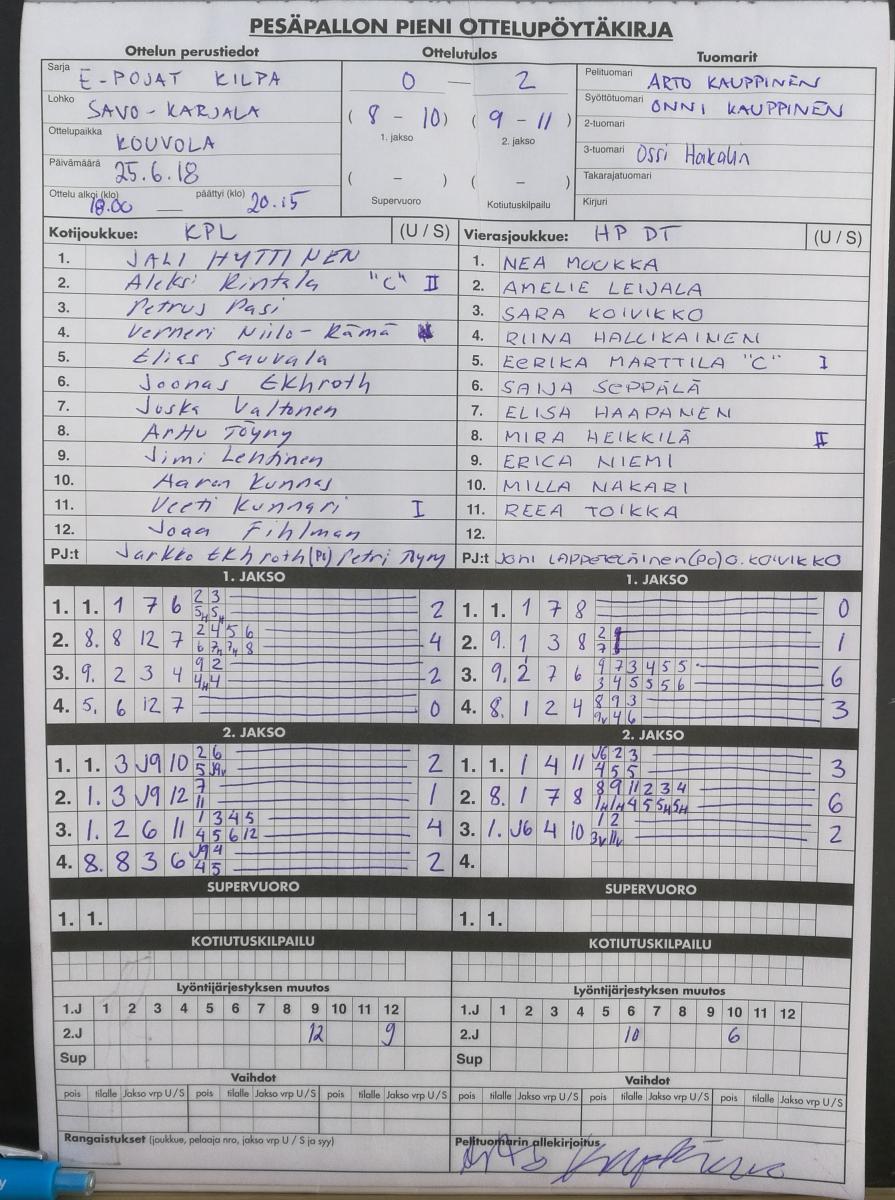 PESÄPALLON PIENI OTTELUPÖYTÄKIRJA
Ottelun perustiedot
Sarja E-POJAT KILPA
Lohko SAVO-KARJALA
Ottelupaikka KOUVOLA
Päivämäärä 25.6.18
Ottelu alkoi (klo) 18.00 — päättyi (klo) 20.15
Ottelutulos
0 — 2
( 8 - 10 ) ( 9 - 11 )
1. jakso 2. jakso
( - ) ( - )
Supervuoro Kotiutuskilpailu
Tuomarit
Pelituomari ARTO KAUPPINEN
Syöttötuomari ONNI KAUPPINEN
2-tuomari
3-tuomari Ossi Hakalin
Takarajatuomari
Kirjuri
Kotijoukkue: KPL (U / S)
1. JALI HYTTINEN
2. Aleksi Rintala "C" II
3. Petrus Pasi
4. Verneri Niilo-Rämä
5. Elias Sauvala
6. Joonas Ekhroth
7. Juska Valtonen
8. Arttu Töyry
9. Jimi Lehtinen
10. Aaron Kunnas
11. Veeti Kunnari I
12. Joaa Fihlman
PJ:t Jarkko Ekhroth (PO) Petri Töyry
Vierasjoukkue: HP DT (U / S)
1. NEA MOUKKA
2. AMELIE LEIJALA
3. SARA KOIVIKKO
4. RIINA HALLIKAINEN
5. EERIKA MARTTILA "C" I
6. SAIJA SEPPÄLÄ
7. ELISA HAAPANEN
8. MIRA HEIKKILÄ II
9. ERICA NIEMI
10. MILLA NAKARI
11. REEA TOIKKA
12.
PJ:t JONI (PO) O. KOIVIKKO
1. JAKSO
1. 1. 1 7 6 2 3 2
5H 5H
2. 8. 8 12 7 2 4 5 6 4
6 7H 7H 8
3. 9. 2 3 4 9 2 2
4H 4
4. 5. 6 12 7 0
1. JAKSO
1. 1. 1 7 8 0
2. 9. 1 3 8 2 1
7
3. 9. 2 7 6 9 7 3 4 5 5 6
3 4 5 5 5 6
4. 8. 1 2 4 8 9 3 3
9v 4 6
2. JAKSO
1. 1. 3 J9 10 2 6 2
5 J9v
2. 1. 3 J9 12 7 1
11
3. 1. 2 6 11 1 3 4 5 4
4 5 6 12
4. 8. 8 3 6 J9 4 2
4 5
2. JAKSO
1. 1. 1 4 11 J6 2 3 3
4 5 5
2. 8. 1 7 8 8 9 11 2 3 4 6
1H 1H 4 5 5H 5H
3. 1. J6 4 10 1 2 2
3v 11v
4.
SUPERVUORO
1. 1.
SUPERVUORO
1. 1.
KOTIUTUSKILPAILU
KOTIUTUSKILPAILU
Lyöntijärjestyksen muutos
1.J 1 2 3 4 5 6 7 8 9 10 11 12
2.J 12 9
Sup
Lyöntijärjestyksen muutos
1.J 1 2 3 4 5 6 7 8 9 10 11 12
2.J 10 6
Sup
Vaihdot
pois tilalle Jakso vrp U / S pois tilalle Jakso vrp U / S pois tilalle Jakso vrp U / S
Vaihdot
pois tilalle Jakso vrp U / S pois tilalle Jakso vrp U / S pois tilalle Jakso vrp U / S
Rangaistukset (joukkue, pelaaja nro, jakso vrp U / S ja syy)
Pelituomarin allekirjoitus